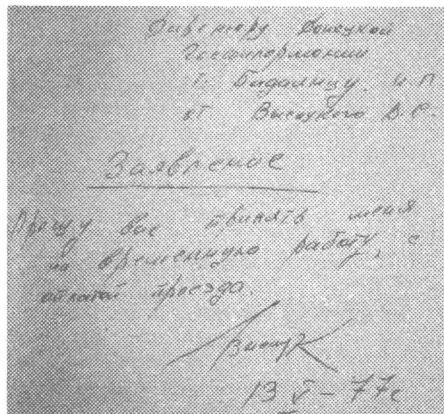 Директору Донецкой
Госфилормонии
т. Бадалянцу. И. П
от Высоцкого В. С.
Заявление
Прошу вас принять меня
на временную работу, с
оплатой проезда.
Высоц
13 V - 77г